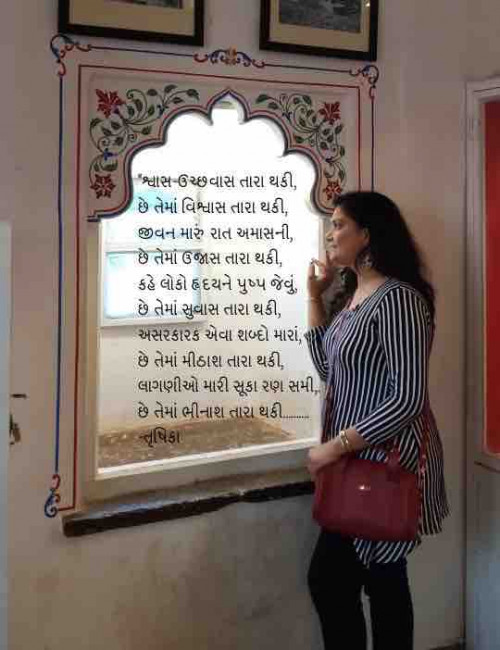 "શ્વાસ-ઉચ્છવાસ તારા થકી,
છે તેમાં વિશ્વાસ તારા થકી,
જીવન મારું રાત અમાસની,
છે તેમાં ઉજાસ તારા થકી,
કહે લોકો હૃદયને પુષ્પ જેવું,
છે તેમાં સુવાસ તારા થકી,
અસરકારક એવા શબ્દો મારાં,
છે તેમાં મીઠાશ તારા થકી,
લાગણીઓ મારી સૂકા રણ સમી,.
છે તેમાં ભીનાશ તારા થકી..........
-તૃષિકા